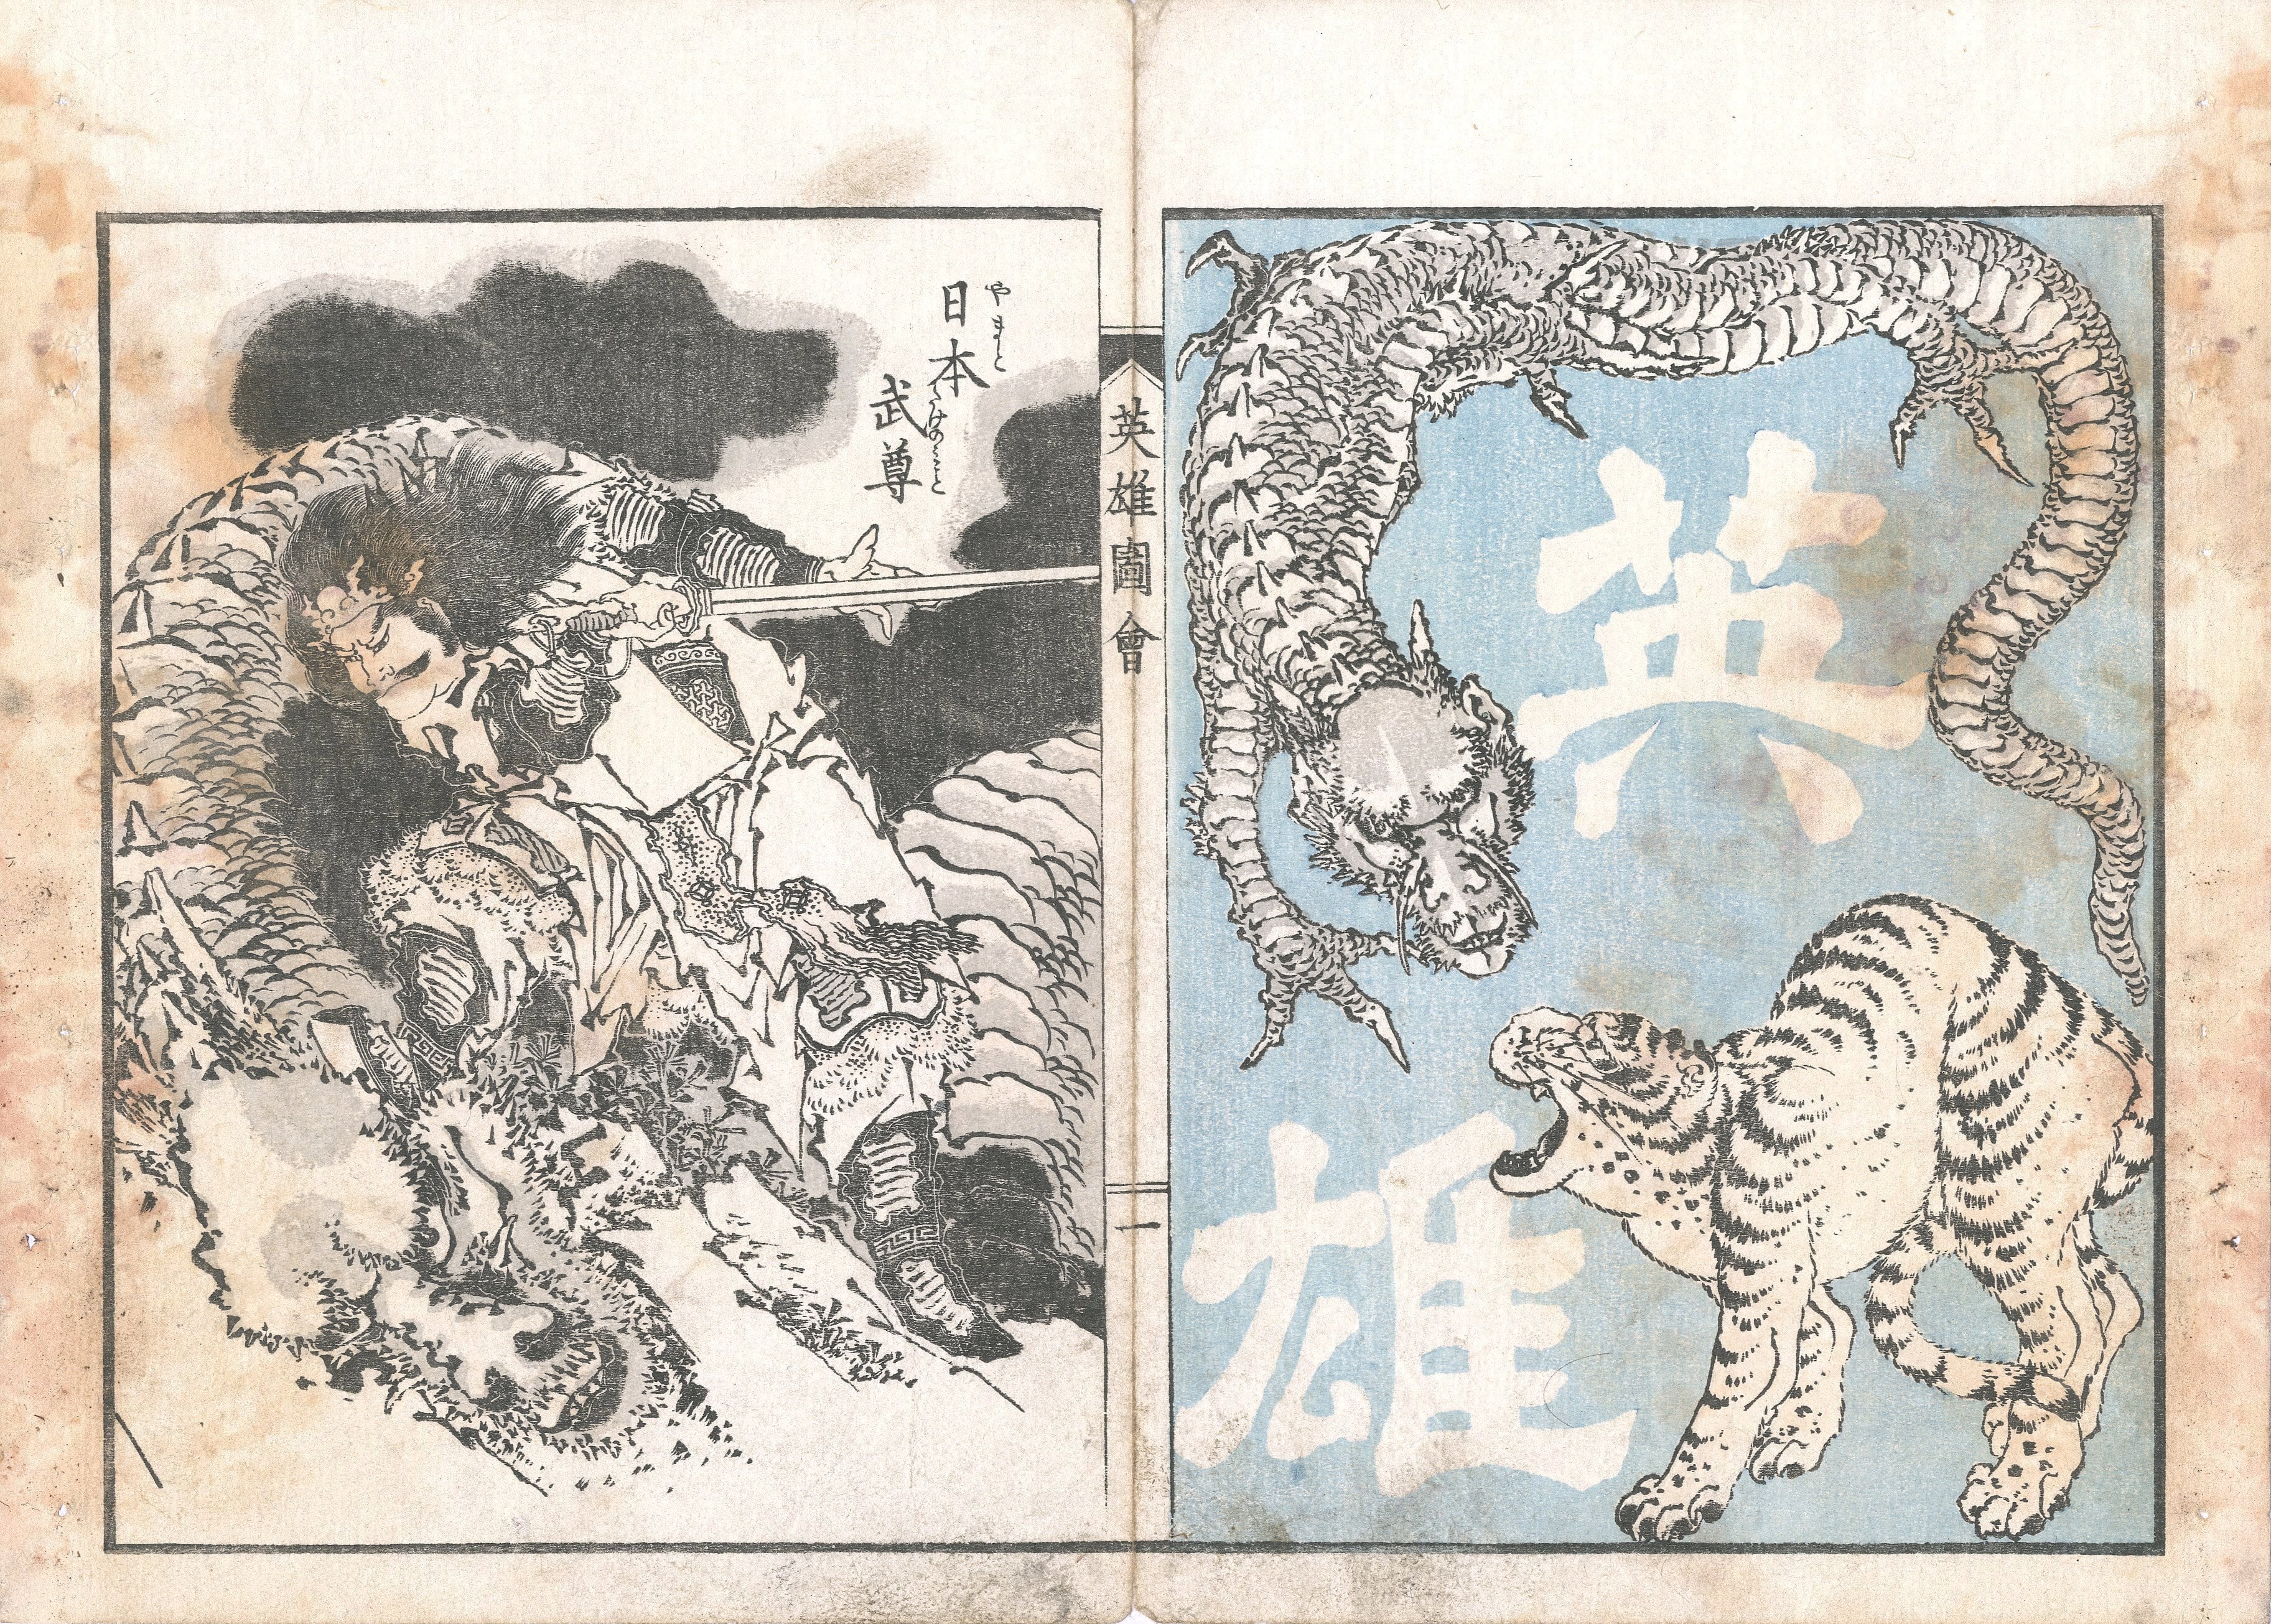 英
雄
英雄圖會
一
日本
やまと
武尊
たけのみこと